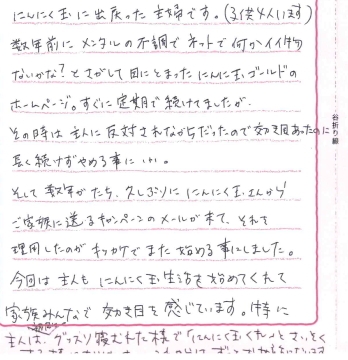 にんにく玉に出戻った主婦です。(子供4人います)
数年前にメンタルの不調でネットで何かイイ物
ないかな?とさがして目にとまったにんにく玉ゴールドの
ホームページ。すぐに定期で続けてましたが、
その時は主人に反対されながらだったので効き目あったのに
長く続けずやめる事に…。
そして数年がたち、久しぶりににんにく玉さんから
ご家族に送るキャンペーンのメールが来て、それを
理用したのがキッカケでまた始める事にしました。
今回は主人もにんにく玉生活を始めてくれて
家族みんなで効き目を感じています。特に
主人は、グッスリ寝むれた様で「にんにく玉くれ〜」とさいそく
谷折り線